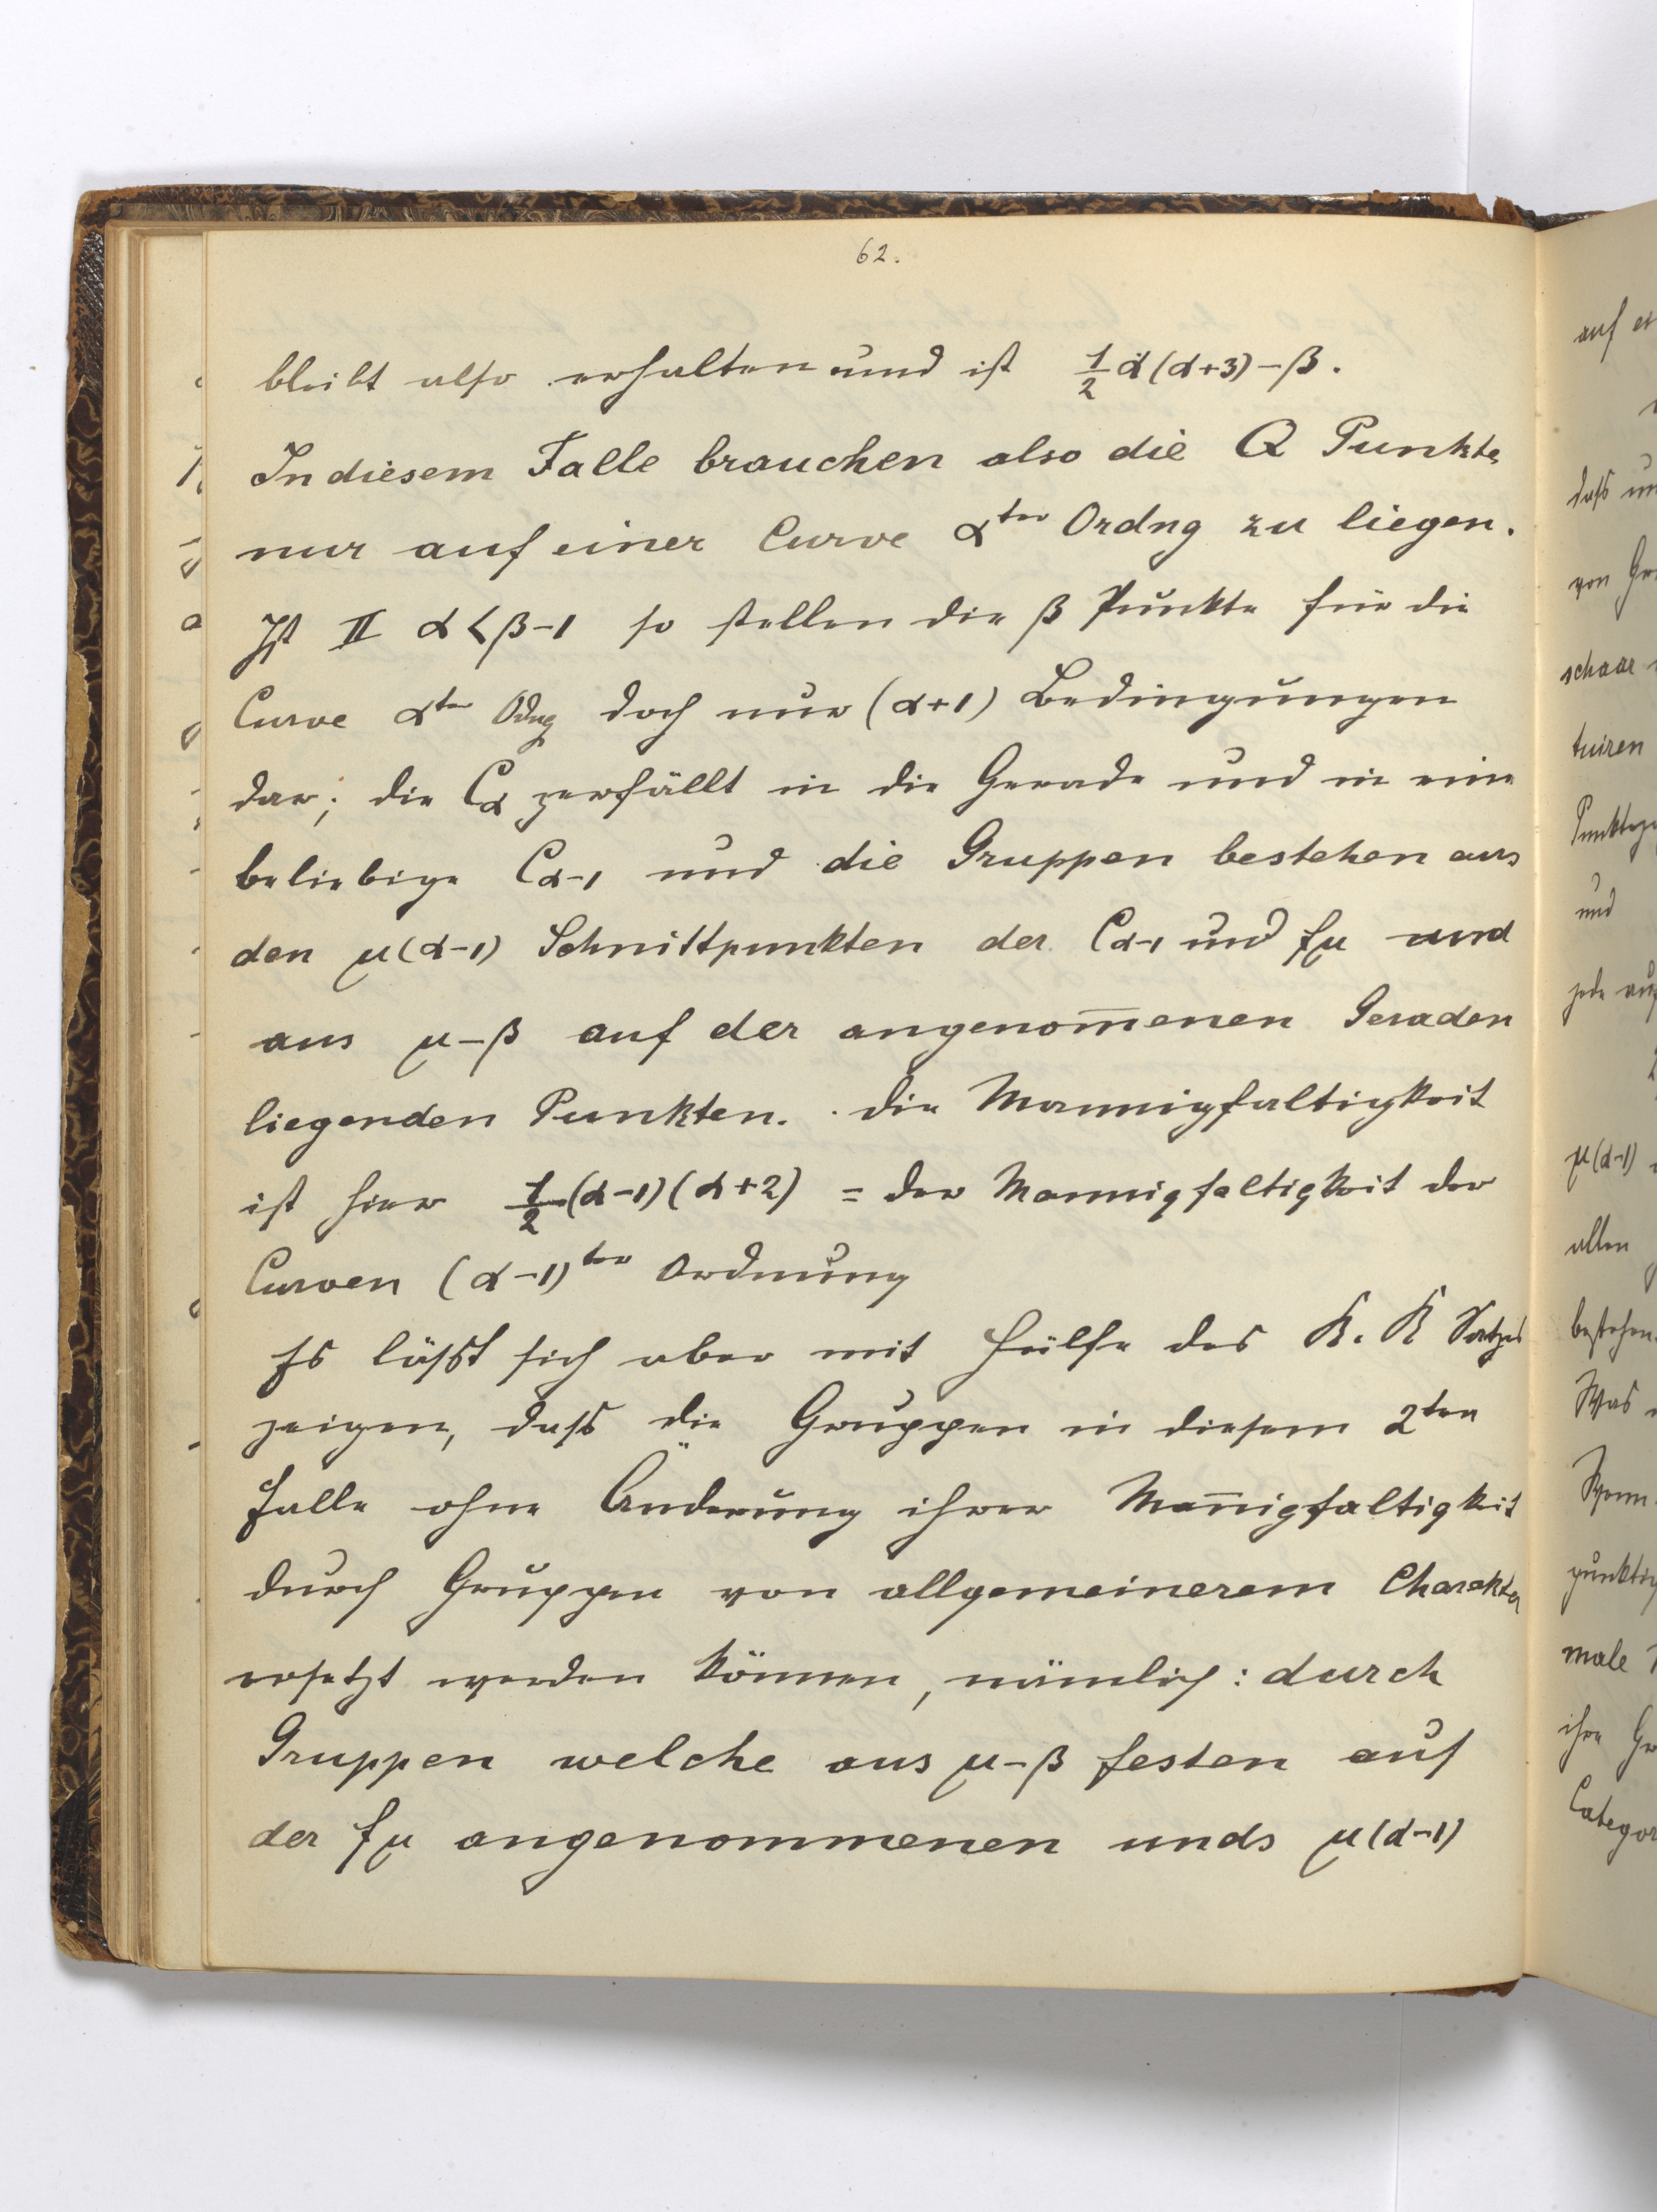 62.
bleibt also erhalten und ist ½ α(α+3)-β.
In diesem Falle brauchen also die Q Punkte
nur auf einer Curve α^ter Ordng zu liegen.
Ist II α<β-1 so stellen die β Punkte für die
Curve α^ter Odng doch nur (α+1) Bedingungen
dar; die Cα zerfällt in die Gerade und in eine
beliebige Cα-1 und die Gruppen bestehen aus
den μ(α-1) Schnittpunkten der Cα-1 und fμ und
aus μ-β auf der angenom̅enen Geraden
liegenden Punkten. die Mannigfaltigkeit
ist hier ½(α-1)(α+2) = der Mannigfaltigkeit der
Curven (α-1)^ter Ordnung
Es läßt sich aber mit Hülfe des R. R Satzes
zeigen, dass die Gruppen in diesem 2^ten
Falle ohne Änderung ihrer Man̅igfaltigkeit
durch Gruppen von allgemeinerem Charakter
ersetzt werden können, nämlich: durch
Gruppen welche aus μ-β festen auf
der fμ angenommenen unds μ(α-1)
auf
dass
von
schaar
tuiren
und
jede
μ(α-1)
allen
bestehen.
Was
Wenn
male
ihre